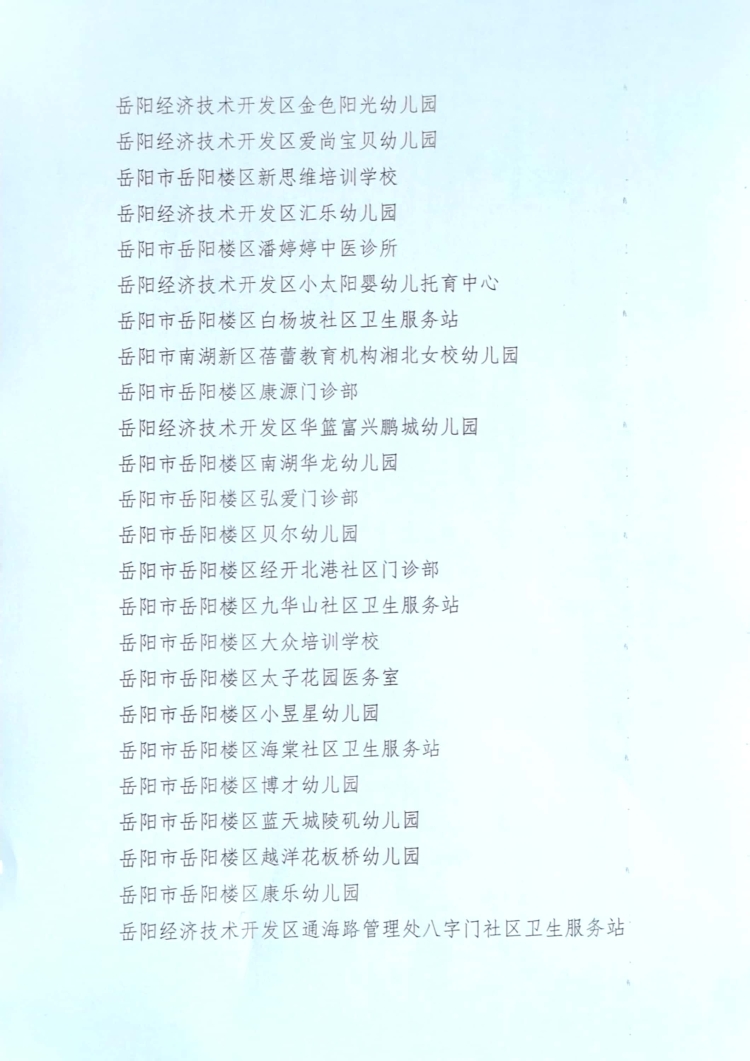 岳阳经济技术开发区金色阳光幼儿园
岳阳经济技术开发区爱尚宝贝幼儿园
岳阳市岳阳楼区新思维培训学校
岳阳经济技术开发区汇乐幼儿园
岳阳市岳阳楼区潘婷婷中医诊所
岳阳经济技术开发区小太阳婴幼儿托育中心
岳阳市岳阳楼区白杨坡社区卫生服务站
岳阳市南湖新区蓓蕾教育机构湘北女校幼儿园
岳阳市岳阳楼区康源门诊部
岳阳经济技术开发区华篮富兴鹏城幼儿园
岳阳市岳阳楼区南湖华龙幼儿园
岳阳市岳阳楼区弘爱门诊部
岳阳市岳阳楼区贝尔幼儿园
岳阳市岳阳楼区经开北港社区门诊部
岳阳市岳阳楼区九华山社区卫生服务站
岳阳市岳阳楼区大众培训学校
岳阳市岳阳楼区太子花园医务室
岳阳市岳阳楼区小昱星幼儿园
岳阳市岳阳楼区海棠社区卫生服务站
岳阳市岳阳楼区博才幼儿园
岳阳市岳阳楼区蓝天城陵矶幼儿园
岳阳市岳阳楼区越洋花板桥幼儿园
岳阳市岳阳楼区康乐幼儿园
岳阳经济技术开发区通海路管理处八字门社区卫生服务站